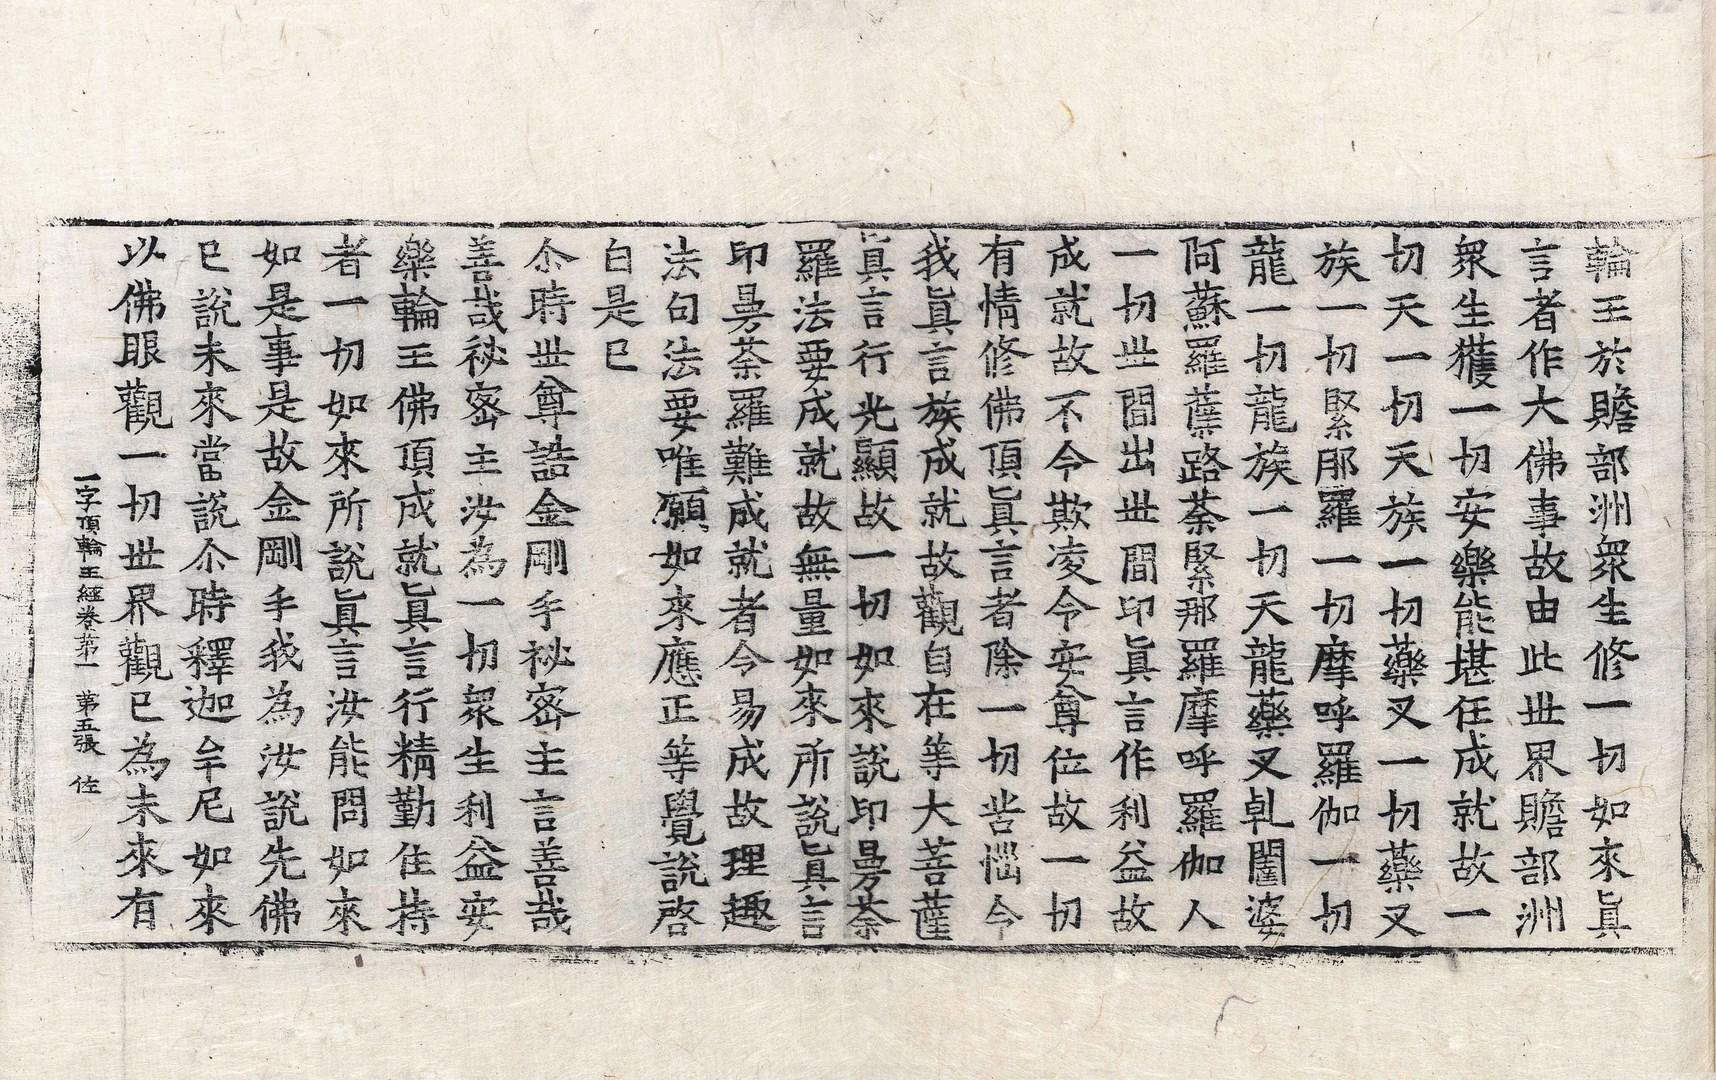 輪王於贍部洲衆生修一切如來眞
言者作大佛事故由此世界贍部洲
衆生獲一切安樂能堪任成就故一
切天一切天族一切藥叉一切藥叉
族一切緊那羅一切摩呼羅伽一切
龍一切龍族一切天龍藥叉乹闥婆
阿蘇羅蘖路荼緊那羅摩呼羅伽人
一切世間出世間印眞言作利益故
成就故不令欺凌令安尊位故一切
有情修佛頂眞言者除一切苦惱令
我眞言族成就故觀自在等大菩薩
眞言行光顯故一切如來說印曼荼
羅法要成就故無量如來所說眞言
印曼荼羅難成就者令易成故理趣
法句法要唯願如來應正等覺說啓
白是已
尒時世尊誥金剛手祕密主言善哉
善哉祕密主汝為一切衆生利益安
樂輪王佛頂成就眞言行精勤住持
者一切如來所說眞言汝能問如來
如是事是故金剛手我為汝說先佛
已說未來當說尒時釋迦牟尼如來
以佛眼觀一切世界觀已為未來有
一字頂輪王經卷苐一 苐五張 佐